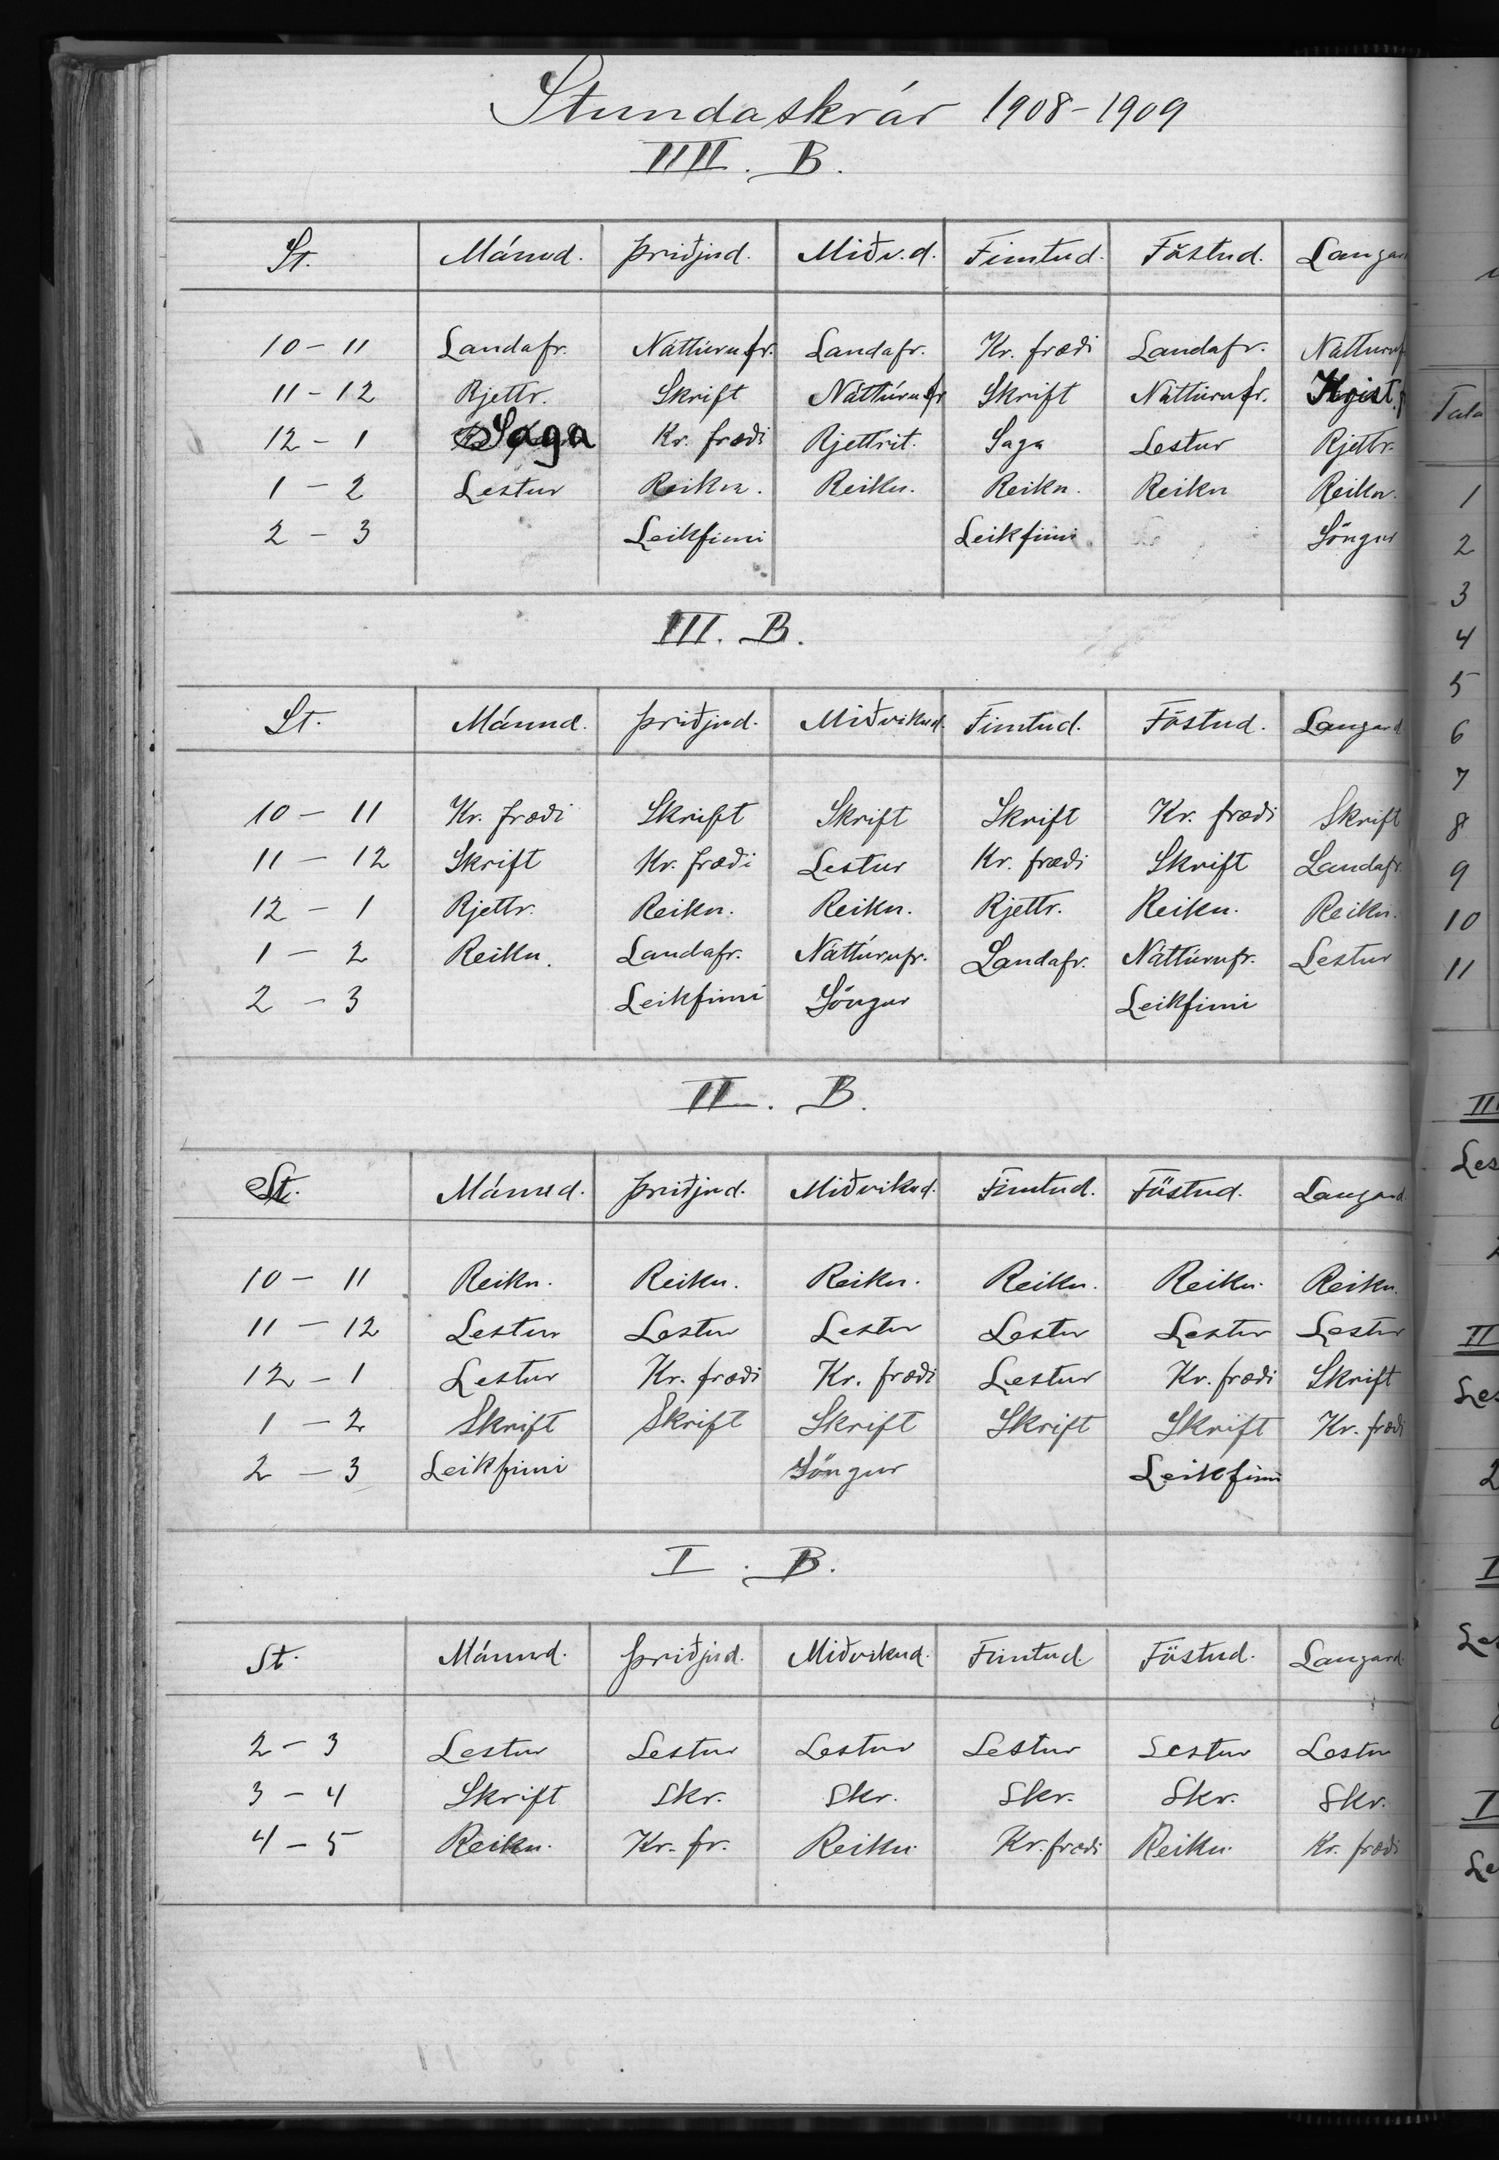 Stundaskrár 1908-1909
IIII. B.
St. Mánud. Þriðjud. Miðv.d. Fimtud. Föstud. Laugar
10 - 11 Landafr. Náttúrufr. Landafr. Kr. fræði Landafr. Náttúruf
11 - 12 Rjettr. Skrift Náttúrufr Skrift Náttúrufr.
12 - 1 Saga Kr. fræði Rjettrit. Saga Lestur Rjettr.
1 - 2 Lestur Reikn. Reikn. Reikn. Reikn Reikn.
2 - 3 Leikfimi Leikfimi Söngur
III. B.
St. Mánud. Þriðjud. Miðvikud. Fimtud. Föstud. Laugard.
10 - 11 Kr. fræði Skrift Skrift Skrift Kr. fræði Skrift
11 - 12 Skrift Kr. fræði Lestur Kr. fræði Skrift Landafr.
12 - 1 Rjettr. Reikn. Reikn. Rjettr. Reikn. Reikn.
1 - 2 Reikn. Landafr. Náttúrufr. Landafr. Náttúrufr. Lestur
2 - 3 Leikfimi Söngur Leikfimi
II. B.
St. Mánud. Þriðjud. Miðvikud. Fimtud. Föstud. Laugard.
10 - 11 Reikn. Reikn. Reikn. Reikn. Reikn. Reikn.
11 - 12 Lestur Lestur Lestur Lestur Lestur Lestur
12 - 1 Lestur Kr. fræði Kr. fræði Lestur Kr. fræði Skrift
1 - 2 Skrift Skrift Skrift Skrift Skrift Kr. fræði
2 - 3 Leikfimi Söngur Leikfimi
I. B.
St. Mánud. Þriðjud. Miðvikud. Fimtud. Föstud. Laugard.
2 - 3 Lestur Lestur Lestur Lestur Lestur Lestur
3 - 4 Skrift Skr. Skr. Skr. Skr. Skr.
4 - 5 Reikn. Kr. fr. Reikn. Kr. fræði Reikn. Kr. fræði
Tala
1
2
3
4
5
6
7
8
9
10
11
III
Les
2
II
Les
2
I
Les
I
Le